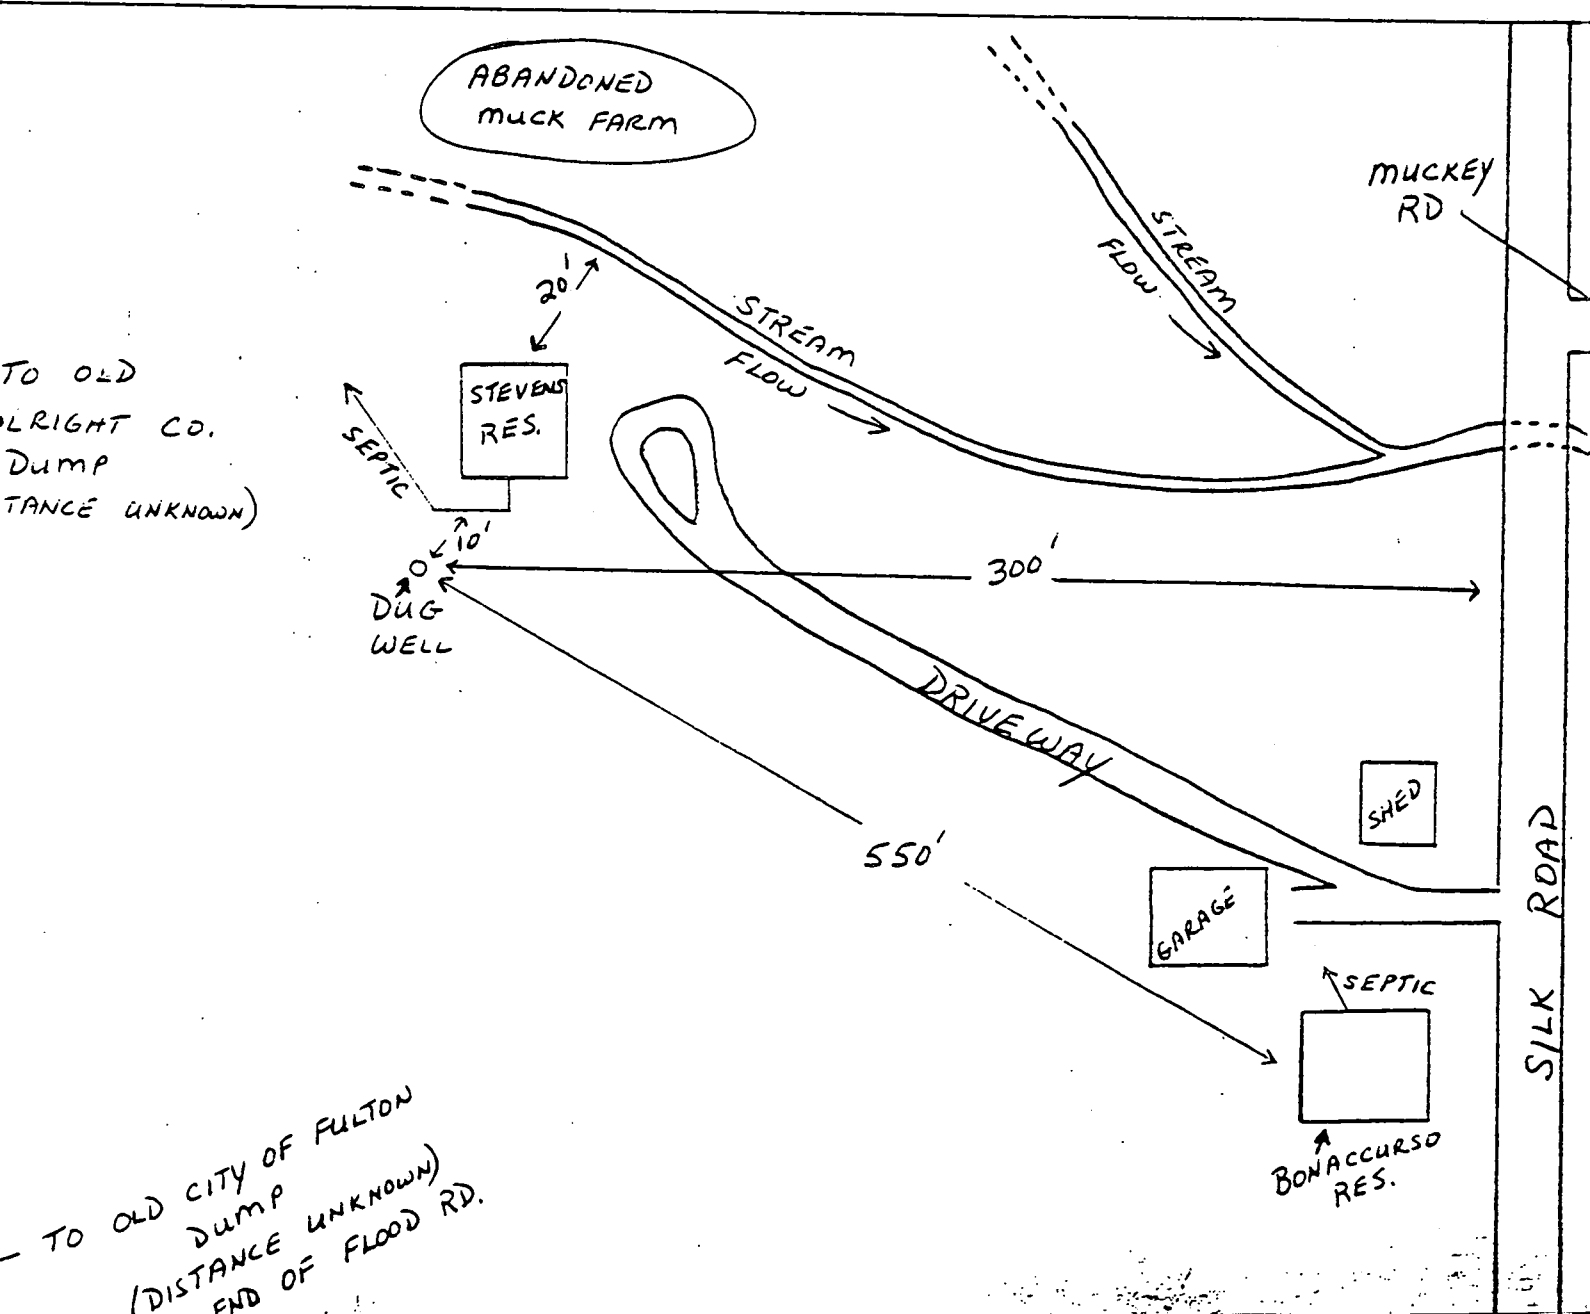 ABANDONED
MUCK FARM
MUCKEY
RD
STREAM
FLOW
20'
STREAM
FLOW
TO OLD
OLRIGHT CO.
DUMP
TANCE UNKNOWN)
STEVENS
RES.
SEPTIC
10'
300'
DUG
WELL
DRIVEWAY
SHED
550'
GARAGE
SILK ROAD
SEPTIC
BONACCURSO
RES.
TO OLD CITY OF FULTON
DUMP
(DISTANCE UNKNOWN)
END OF FLOOD RD.